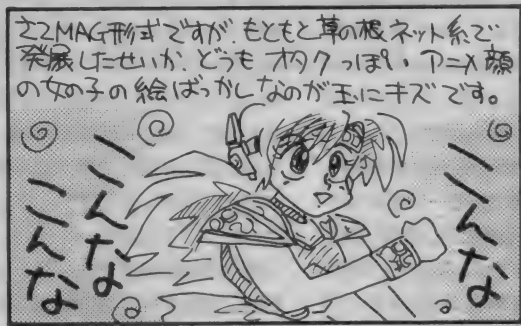 さてMAG形式ですが、もともと草の根ネット系で
発展したせいか、どうもオタクっぽい アニメ顔
の女の子の絵ばっかしなのが玉にキズです。
こんな
こんな
こんな